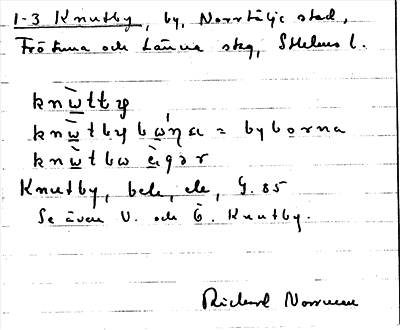 1-3 Knutby, by, Norrtälje stad,
Frötuna och Länna skg, Sthlms l.
knẁtty
knẁtby bẁŋa = byborna
knẁtbω ὲgər
Knutby, beb, ele, G. 85
Se även V. och Ö. Knutby.
Rickard